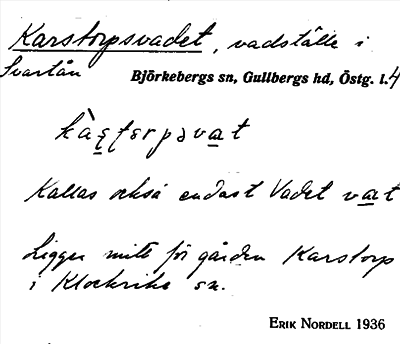 Karstorpsvadet, vadställe i
Svartån Björkebergs sn, Gullbergs hd, Östg. l. 4
Kallas också endast Vadet va̲t
Ligger mitt för gården Karstorp
i Klockrike sn.
ERIK NORDELL 1936